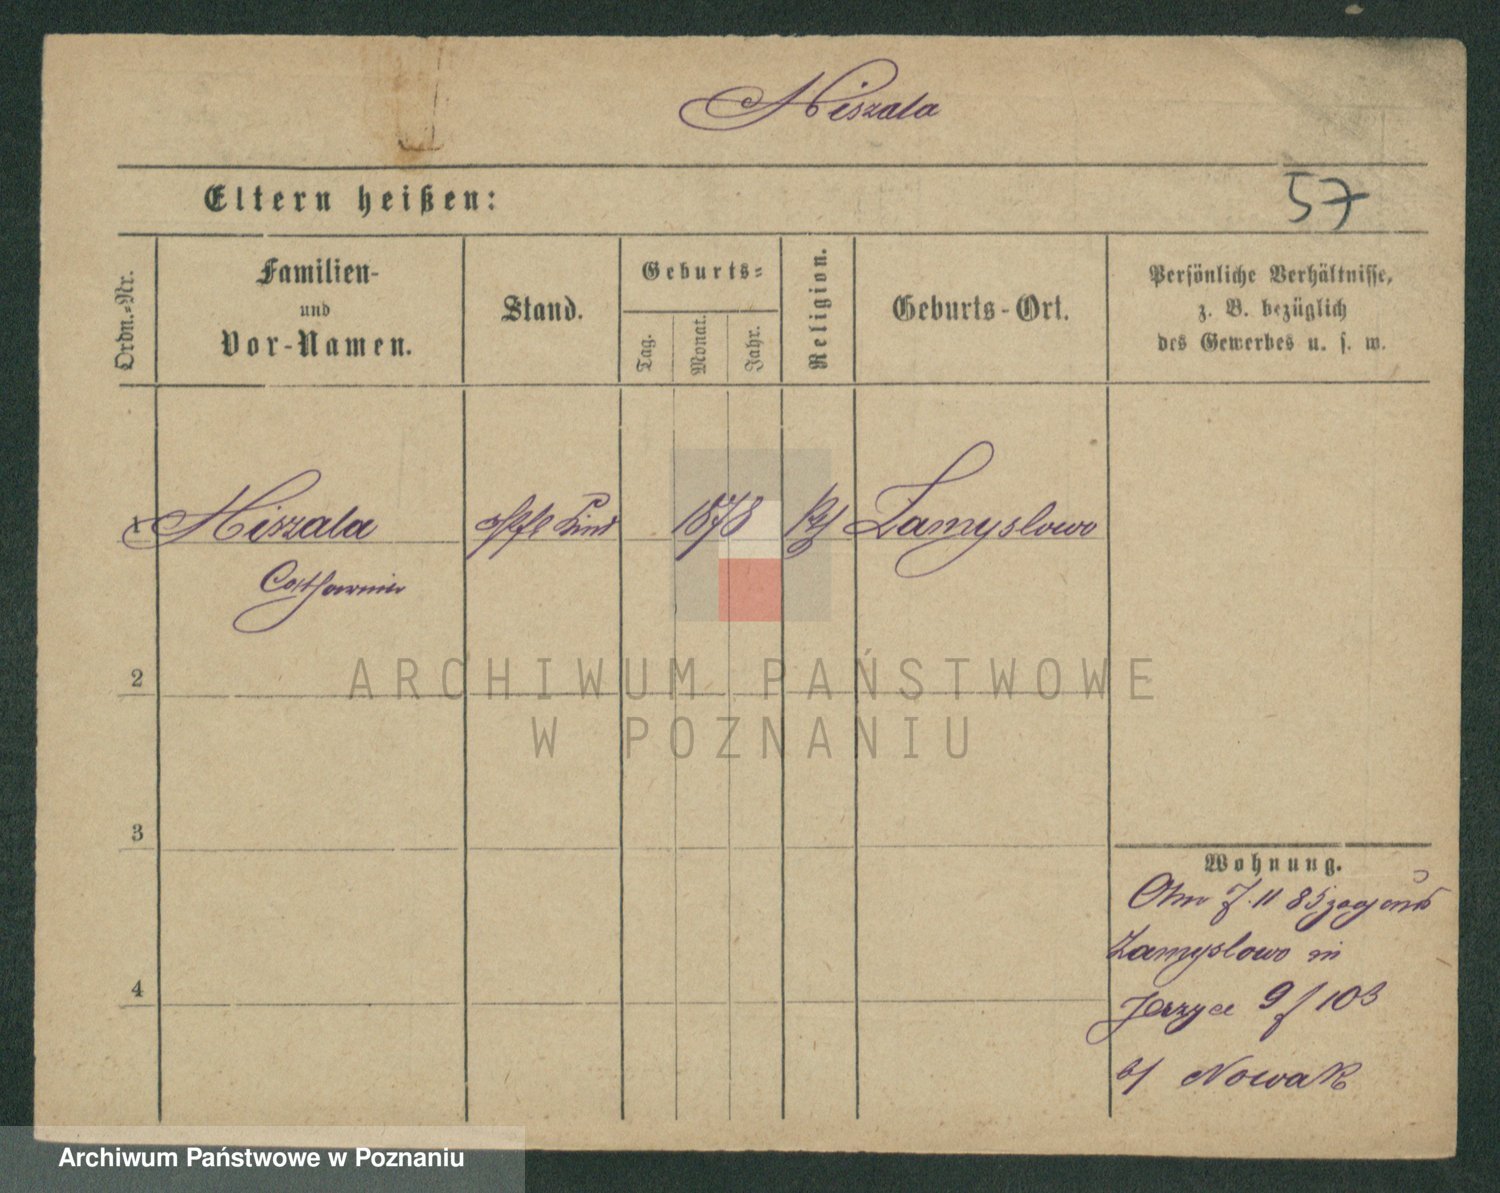 Hiszala
Eltern heißen:
57
Ordn.-Nr.
Familien-
und
Vor-Namen.
Stand.
Geburts-
Tag.
Monat.
Jahr.
Religion.
Geburts-Ort.
Persönliche Verhältnisse,
z. B. bezüglich
des Gewerbes u. s. w.
1 Hiszala Kind 1878 Zamyslowo
Catharina
2
3
4
Wohnung.
7.11 85
Zamyslowo in
Jerzyce 9 f 103
b/ Nowak
ARCHIWUM PAŃSTWOWE
W POZNANIU
Archiwum Państwowe w Poznaniu